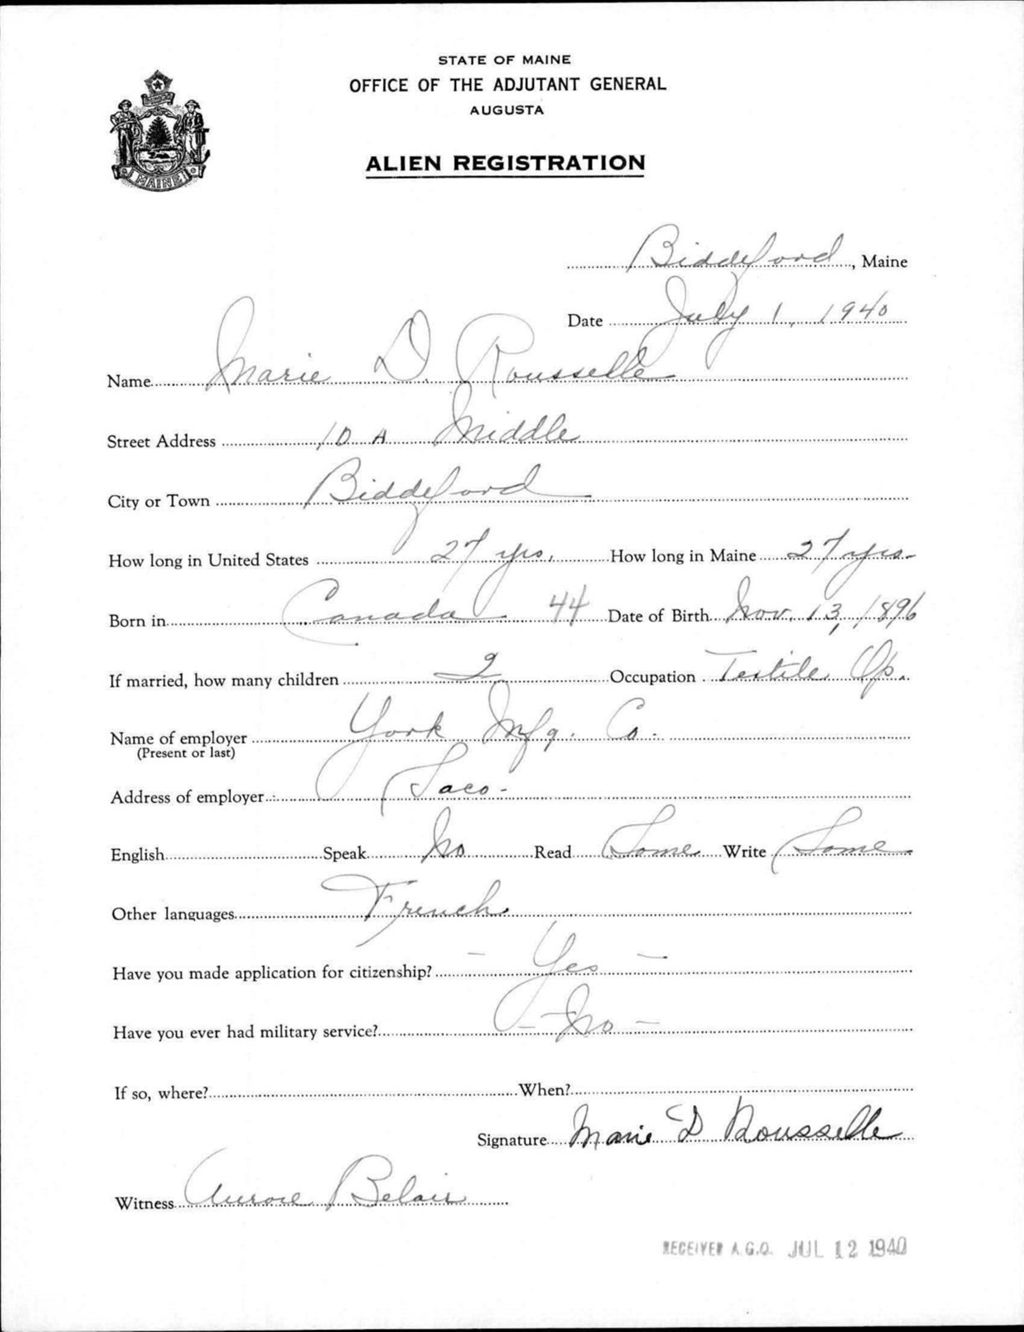 STATE OF MAINE
OFFICE OF THE ADJUTANT GENERAL
AUGUSTA
ALIEN REGISTRATION
MAINE
Biddeford, Maine
Date July 1, 1940
Name Marie D. Rousselle
Street Address 10 A Middle
City or Town Biddeford
How long in United States 27 yrs. How long in Maine 27 yrs-
Born in Canada 44 Date of Birth Nov. 13, 1896
If married, how many children 2 Occupation Textile Op.
Name of employer York Mfg. Co.
(Present or last)
Address of employer Saco-
English Speak No Read Some Write Some
Other languages French
Have you made application for citizenship? - Yes -
Have you ever had military service? - No -
If so, where? When?
Signature Marie D Rousselle
Witness Aurore Belair
RECEIVED A.G.O. JUL 12 1940